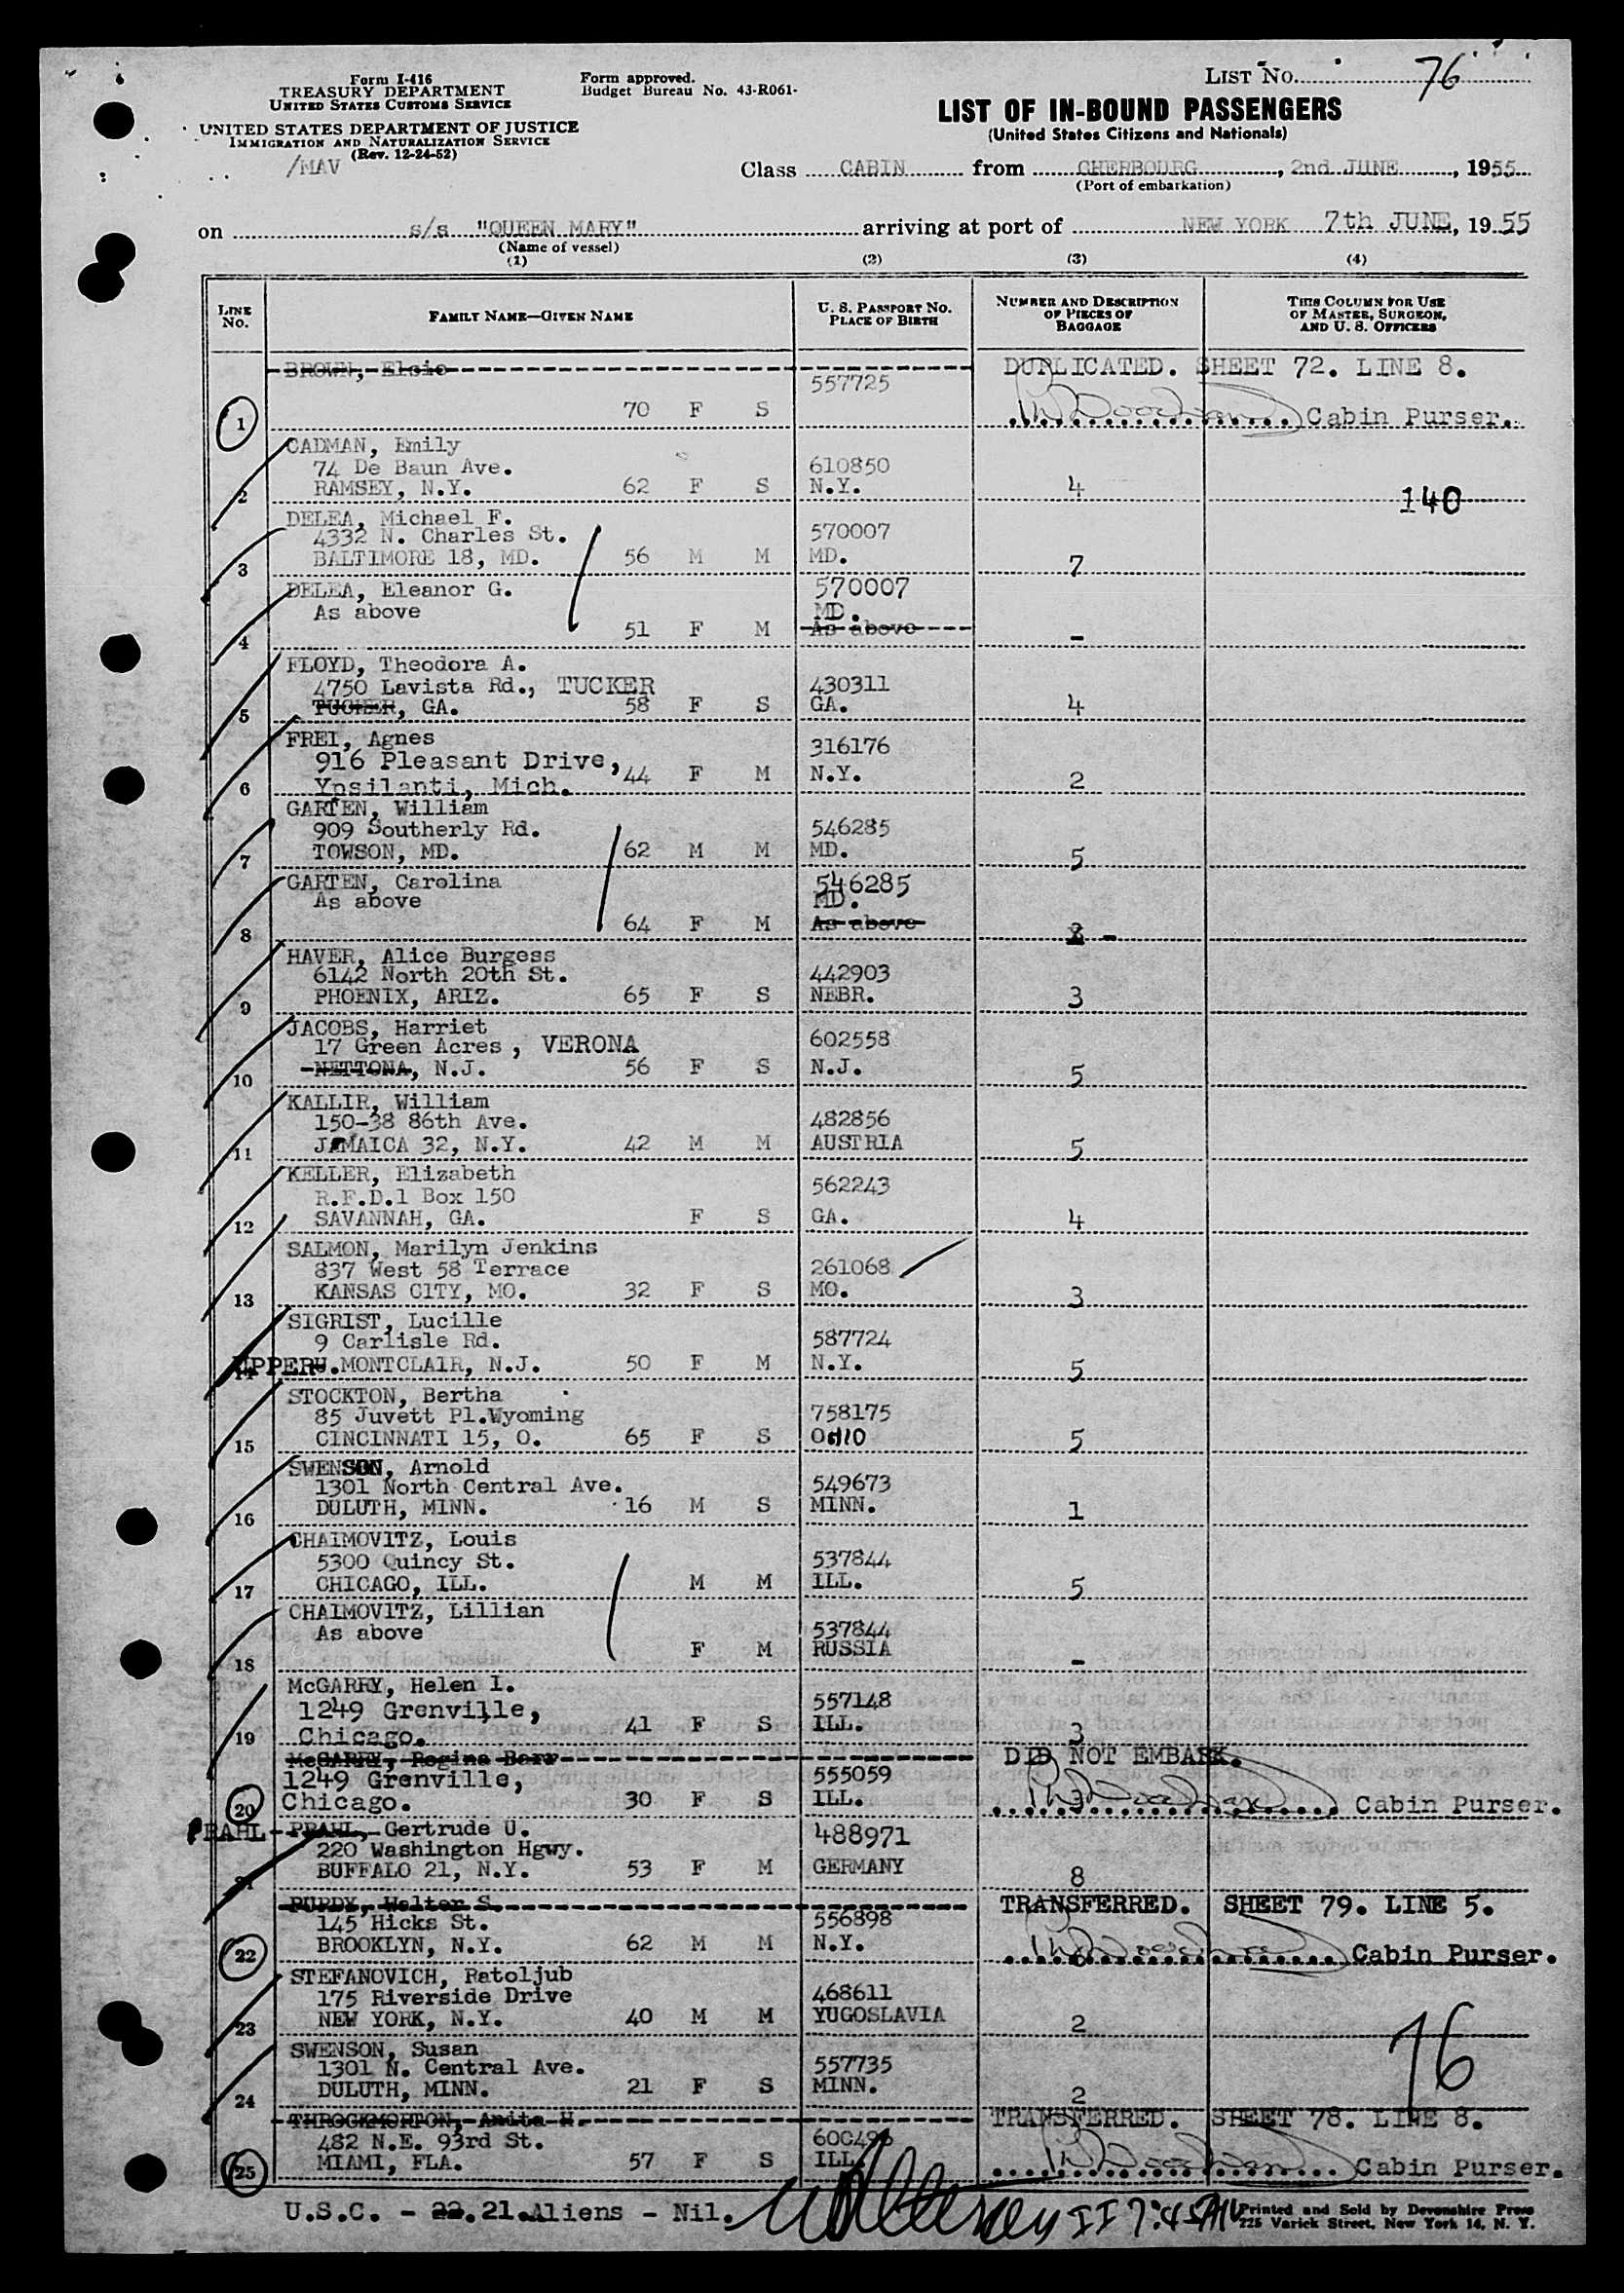 Form I-416
TREASURY DEPARTMENT
UNITED STATES CUSTOMS SERVICE
UNITED STATES DEPARTMENT OF JUSTICE
IMMIGRATION AND NATURALIZATION SERVICE
(Rev. 12-24-52)
/MAV
Form approved.
Budget Bureau No. 43-R061-
LIST NO. 76
LIST OF IN-BOUND PASSENGERS
(United States Citizens and Nationals)
Class CABIN from CHERBOURG, 2nd JUNE, 1955
(Port of embarkation)
on s/s "QUEEN MARY" arriving at port of NEW YORK 7th JUNE, 1955
(Name of vessel)
(1) (2) (3) (4)
LINE No. FAMILY NAME—GIVEN NAME U. S. PASSPORT No. PLACE OF BIRTH NUMBER AND DESCRIPTION OF PIECES OF BAGGAGE THIS COLUMN FOR USE OF MASTER, SURGEON, AND U. S. OFFICERS
BROWN, Elsie DUPLICATED. SHEET 72. LINE 8.
557725
1 70 F S Cabin Purser.
CADMAN, Emily
74 De Baun Ave. 610850
2 RAMSEY, N.Y. 62 F S N.Y. 4 140
DELEA, Michael F.
4332 N. Charles St. 570007
3 BALTIMORE 18, MD. 56 M M MD. 7
DELEA, Eleanor G. 570007
As above MD.
4 51 F M As above -
FLOYD, Theodora A.
4750 Lavista Rd., TUCKER 430311
5 TUCHER, GA. 58 F S GA. 4
FREI, Agnes 316176
916 Pleasant Drive,
6 Ypsilanti, Mich. 44 F M N.Y. 2
GARTEN, William
909 Southerly Rd. 546285
7 TOWSON, MD. 62 M M MD. 5
GARTEN, Carolina 546285
As above MD.
8 64 F M As above -
HAVER, Alice Burgess
6142 North 20th St. 442903
9 PHOENIX, ARIZ. 65 F S NEBR. 3
JACOBS, Harriet 602558
17 Green Acres, VERONA
10 NETTONA, N.J. 56 F S N.J. 5
KALLIR, William
150-38 86th Ave. 482856
11 JAMAICA 32, N.Y. 42 M M AUSTRIA 5
KELLER, Elizabeth
R.F.D.1 Box 150 562243
12 SAVANNAH, GA. F S GA. 4
SALMON, Marilyn Jenkins
837 West 58 Terrace 261068
13 KANSAS CITY, MO. 32 F S MO. 3
SIGRIST, Lucille
9 Carlisle Rd. 587724
14 UPPER U. MONTCLAIR, N.J. 50 F M N.Y. 5
STOCKTON, Bertha
85 Juvett Pl.Wyoming 758175
15 CINCINNATI 15, O. 65 F S OHIO 5
SWENSON, Arnold
1301 North Central Ave. 549673
16 DULUTH, MINN. 16 M S MINN. 1
CHAIMOVITZ, Louis
5300 Quincy St. 537844
17 CHICAGO, ILL. M M ILL. 5
CHAIMOVITZ, Lillian
As above 537844
18 F M RUSSIA -
McGARRY, Helen I.
1249 Grenville, 557148
19 Chicago. 41 F S ILL. 3
McGARRY, Regina Barr DID NOT EMBARK.
1249 Grenville, 555059
20 Chicago. 30 F S ILL. 3 Cabin Purser.
PRAHL PRAHL, Gertrude U. 488971
220 Washington Hgwy.
21 BUFFALO 21, N.Y. 53 F M GERMANY 8
PURDY, Walter S. TRANSFERRED. SHEET 79. LINE 5.
145 Hicks St. 556898
22 BROOKLYN, N.Y. 62 M M N.Y. Cabin Purser.
STEFANOVICH, Ratoljub
175 Riverside Drive 468611
23 NEW YORK, N.Y. 40 M M YUGOSLAVIA 2
SWENSON, Susan 76
1301 N. Central Ave. 557735
24 DULUTH, MINN. 21 F S MINN. 2
THROCKMORTON, Anita H. TRANSFERRED. SHEET 78. LINE 8.
482 N.E. 93rd St.
25 MIAMI, FLA. 57 F S ILL. Cabin Purser.
U.S.C. - 22. 21. Aliens - Nil.
Printed and Sold by Devonshire Press
225 Varick Street, New York 14, N. Y.